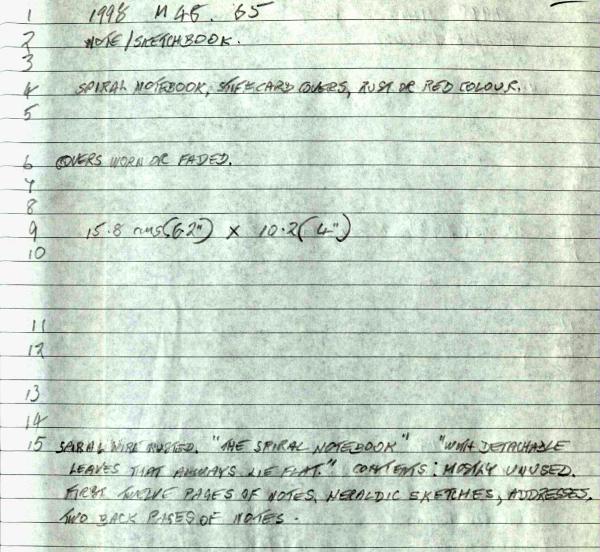 1 1998 M46. 65
2 NOTE/SKETCHBOOK.
3
4 SPIRAL NOTEBOOK, STIFF CARD COVERS, RUST OR RED COLOUR.
5
6 COVERS WORN OR FADED.
7
8
9 15.8 cms (6.2") x 10.2 (4")
10
11
12
13
14
15 SPIRAL WIRE RUSTED. "THE SPIRAL NOTEBOOK" "WITH DETACHABLE
LEAVES THAT ALWAYS LIE FLAT." CONTENTS: MOSTLY UNUSED.
FIRST TWELVE PAGES OF NOTES, HERALDIC SKETCHES, ADDRESSES.
TWO BACK PAGES OF NOTES.